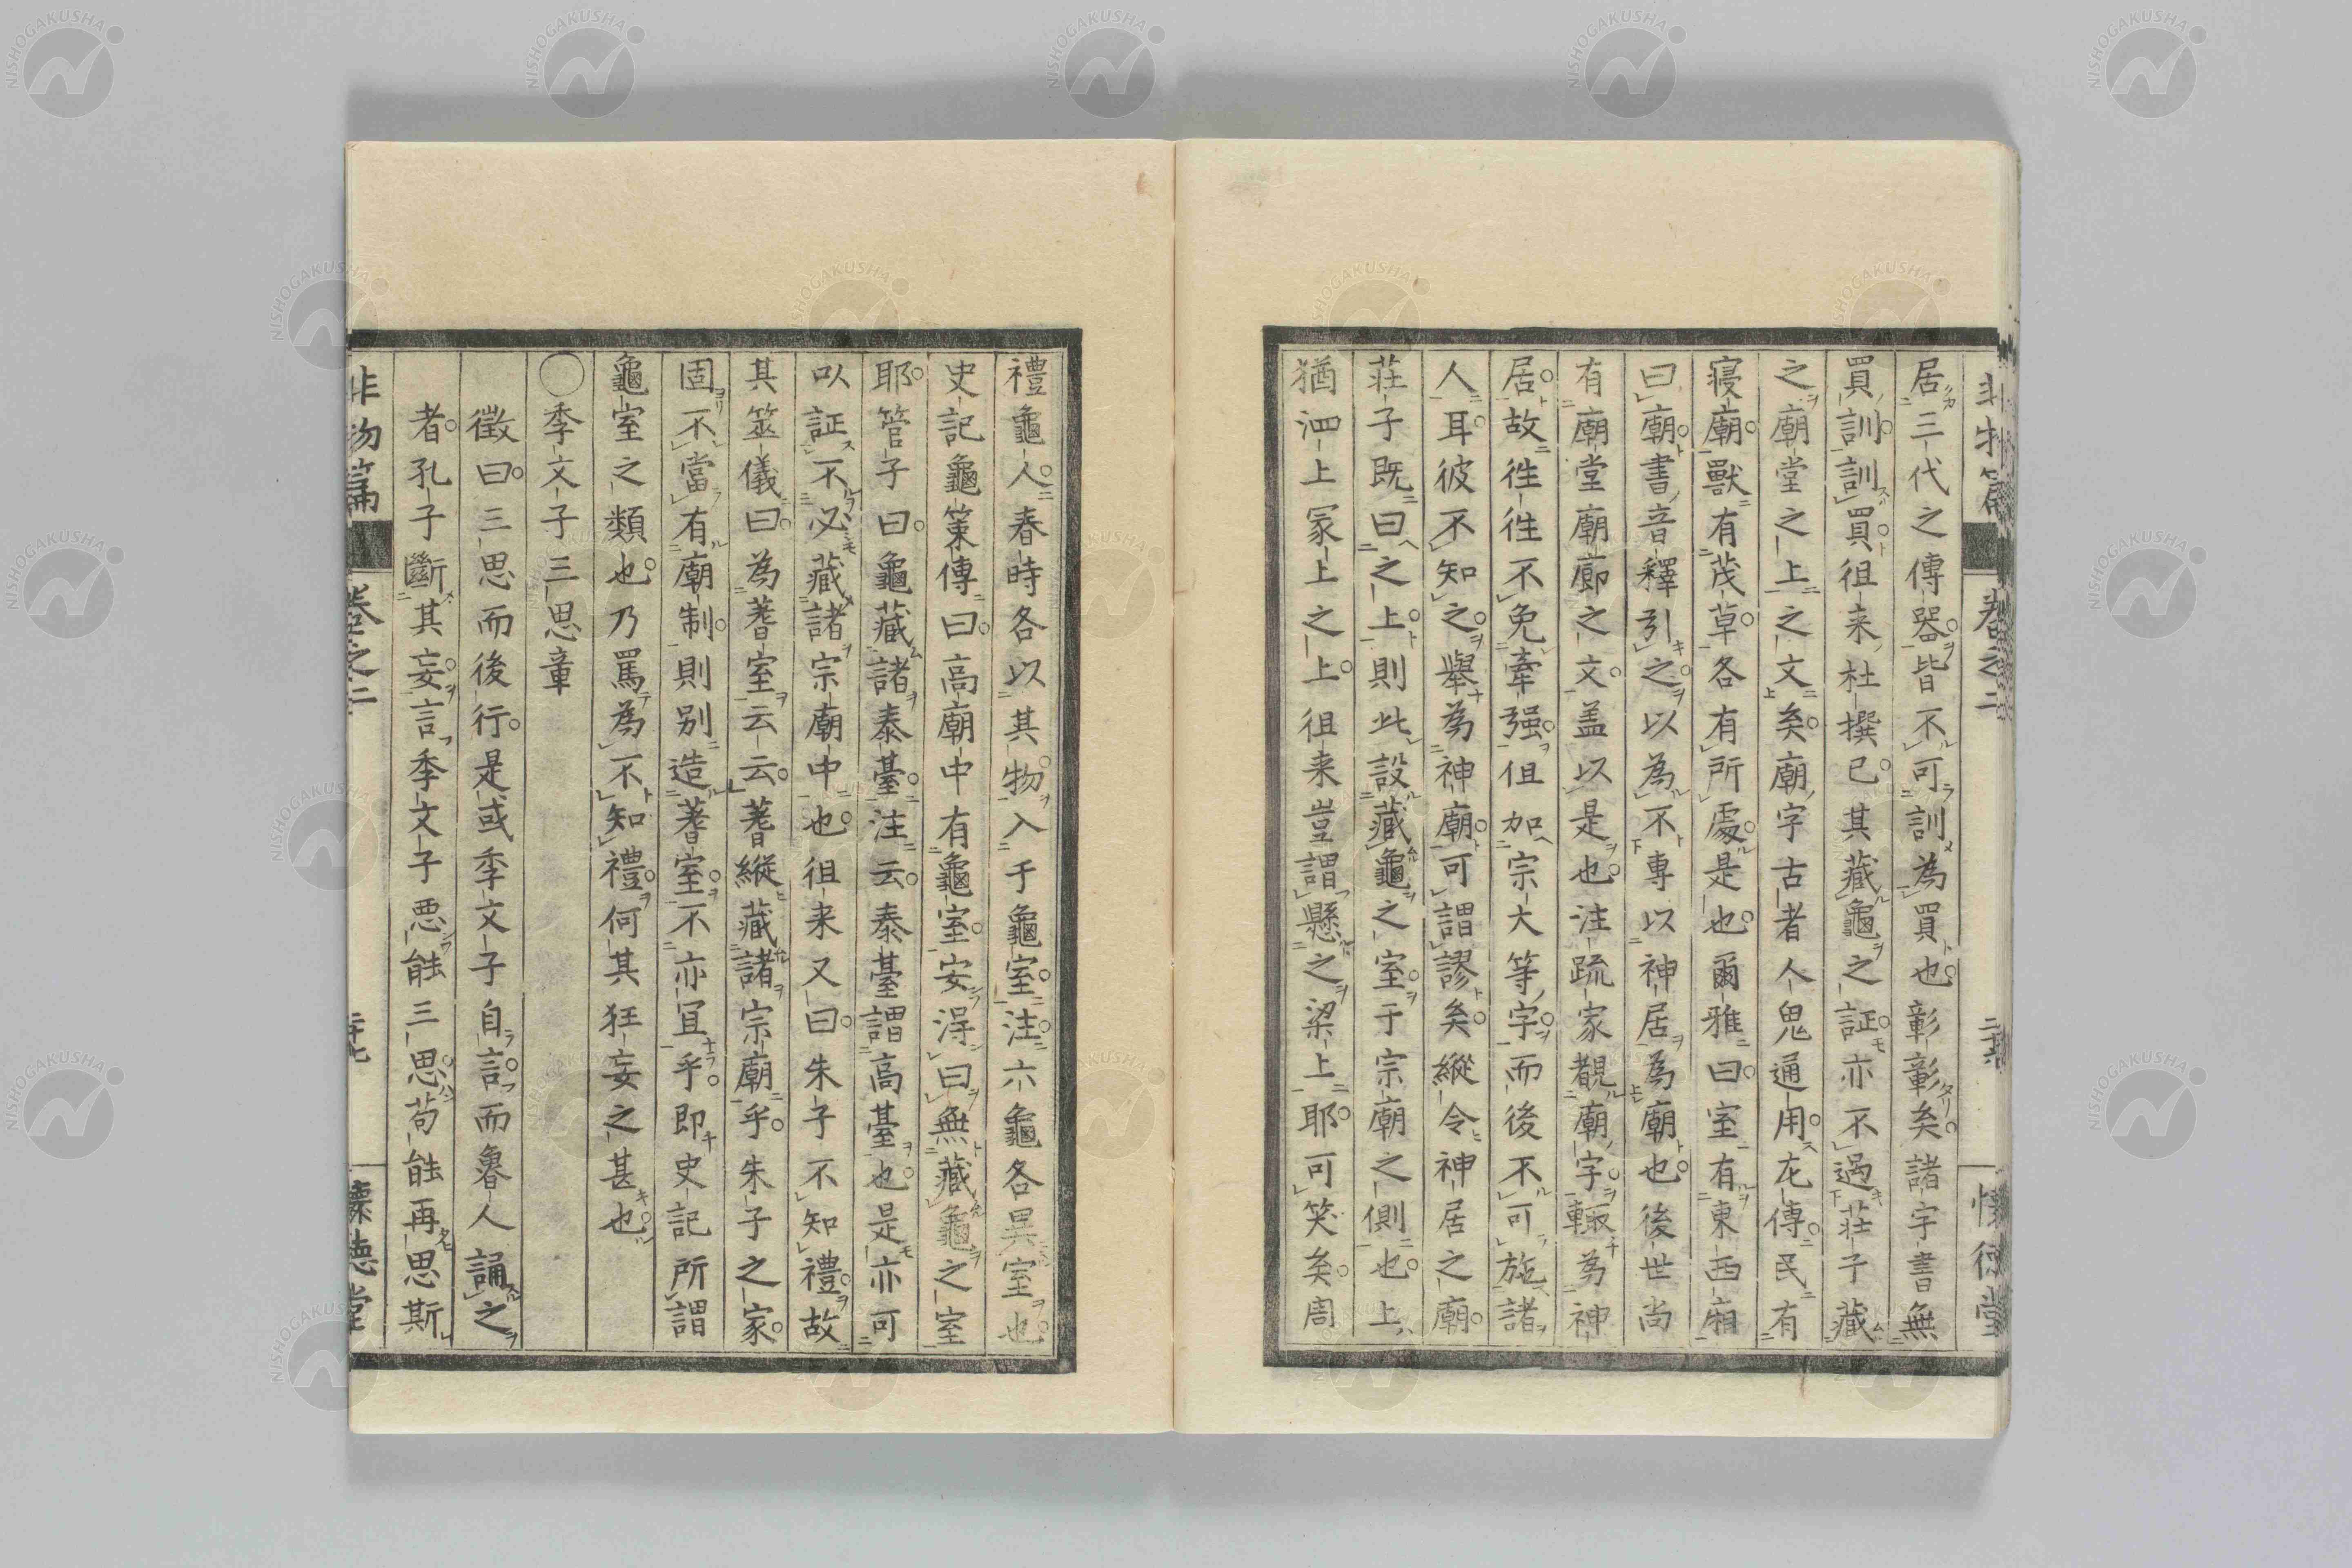 非物篇 卷之二 懷德堂
居三代之傳器皆不可訓為買也彰彰矣諸字書無
買訓訓買徂来杜撰已其藏龜之証亦不過莊子藏
之廟堂之上之文矣廟字古者人鬼通用左傳民有
寝廟獸有茂草各有所處是也爾雅曰室有東西廂
曰廟書音釋引之以為不專以神居為廟也後世尚
有廟堂廟廊之文盖以是也注疏家覩廟字輙為神
居故徃徃不免牽强但加宗大等字而後不可施諸
人耳彼不知之舉為神廟可謂謬矣縱令神居之廟
莊子既曰之上則此設藏龜之室于宗廟之側也上
猶泗上冢上之上徂来豈謂懸之梁上耶可笑矣周
禮龜人春時各以其物入于龜室注六龜各異室也
史記龜筞傳曰高廟中有龜室安淂曰無藏龜之室
耶管子曰龜藏諸泰臺注云泰臺謂高臺也是亦可
以証不必藏諸宗廟中也徂来又曰朱子不知禮故
其筮儀曰為蓍室云云蓍縱藏諸宗廟乎朱子之家
固不當有廟制則别造蓍室不亦宜乎即史記所謂
龜室之類也乃罵為不知禮何其狂妄之甚也
○季文子三思章
徵曰三思而後行是或季文子自言而魯人誦之
者孔子斷其妄言季文子悪能三思苟能再思斯
非物篇 卷之二 二十七 懷德堂